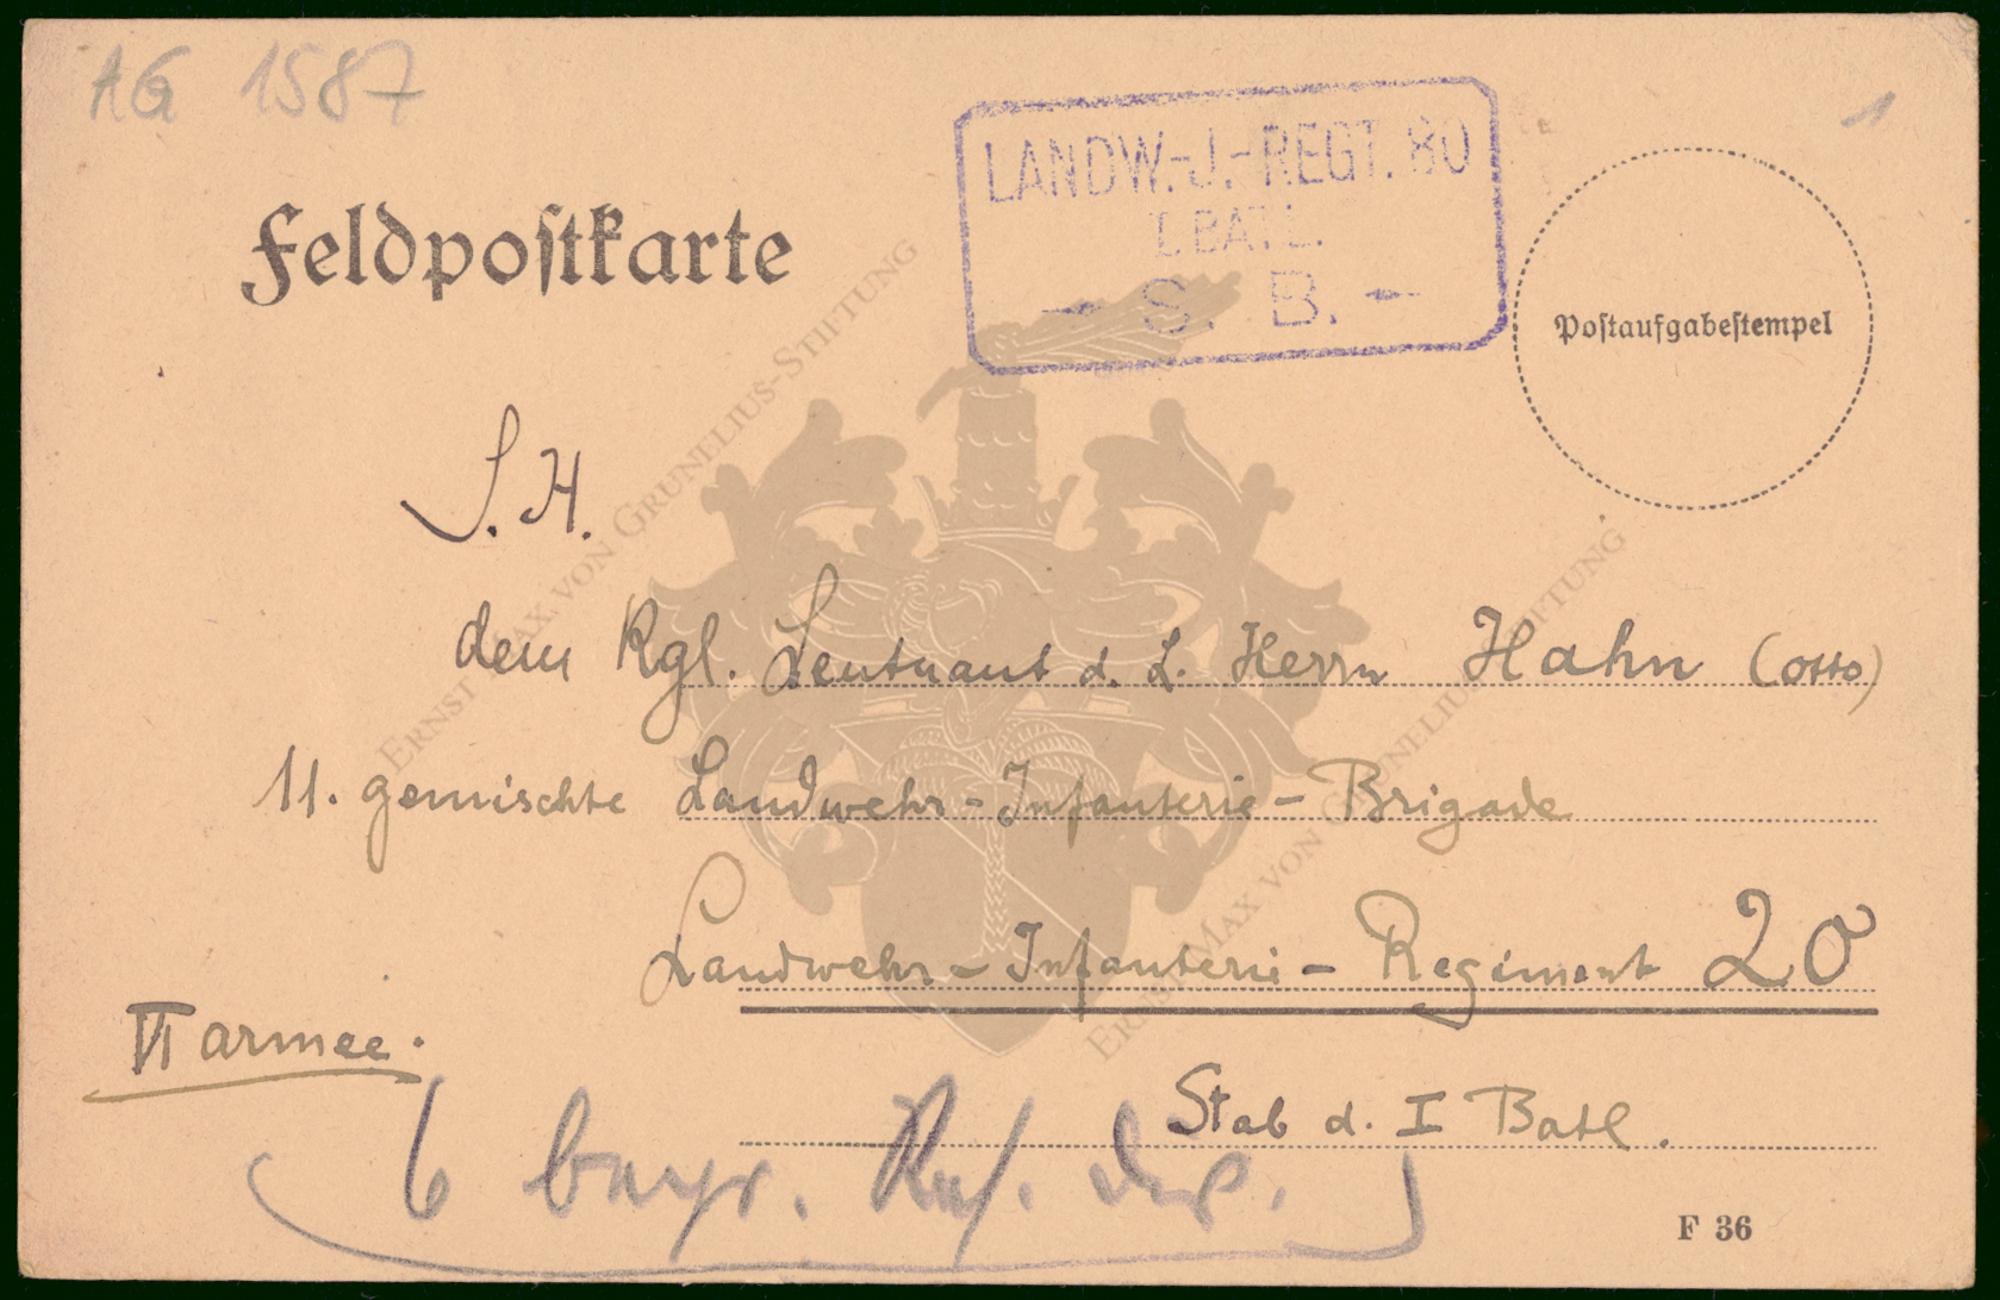 AG 1587
1
LANDW.-J.-REGT. 80
I. BATL.
S. B.
Feldpostkarte
Postaufgabestempel
S. H.
dem Kgl. Leutnant d. L. Herrn Hahn (Otto)
11. gemischte Landwehr-Infanterie-Brigade
Landwehr-Infanterie-Regiment 20
VI armee.
Stab d. I Batl.
6 bayr. Res. Div.
F 36
ERNST MAX VON GRUNELIUS-STIFTUNG
ERNST MAX VON GRUNELIUS-STIFTUNG